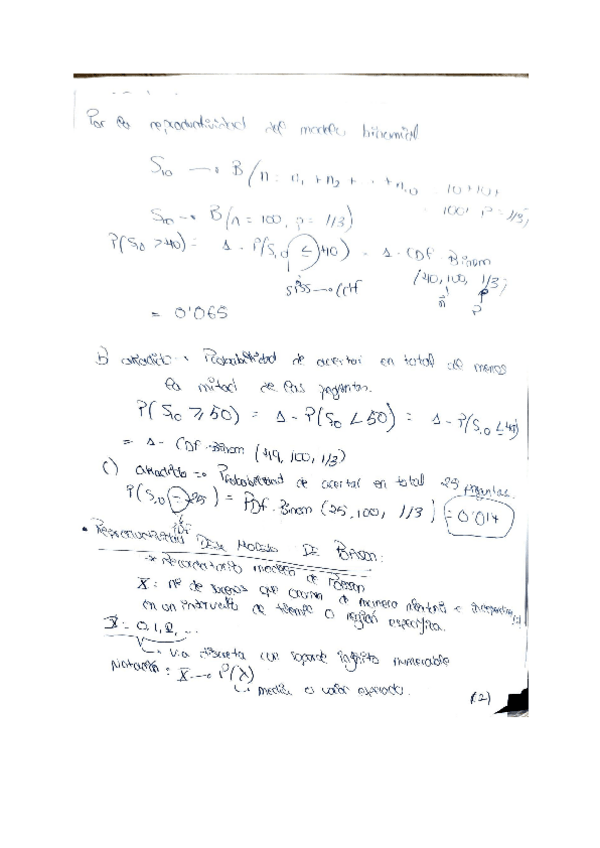 Por la reproductividad del modelo binomial
S10 → B(n = n1 + n2 + ... + n10 = 10+10+
= 100, p = 1/3)
S10 → B(n = 100, p = 1/3)
P(S10 > 40) = 1 - P(S10 ≤ 40) = 1 - CDF.Binom
(40, 100, 1/3)
SPSS → CDF
n p
= 0'065
b) añadido: Probabilidad de acertar en total de menos
la mitad de las preguntas.
P(S10 ≥ 50) = 1 - P(S10 < 50) = 1 - P(S10 ≤ 49)
= 1 - CDF.Binom (49, 100, 1/3)
c) añadido => Probabilidad de acertar en total 25 preguntas.
P(S10 = 25) = PDF.Binom (25, 100, 1/3) = 0'014
PDF
• MODELO DE
→ Recordatorio modelo de Poisson
X: nº de sucesos que ocurren de manera aleatoria e
en un intervalo de tiempo o región específica.
X = 0, 1, 2, ...
v.a discreta con soporte infinito numerable
Notación: X → P(λ)
media o valor esperado.
(2)